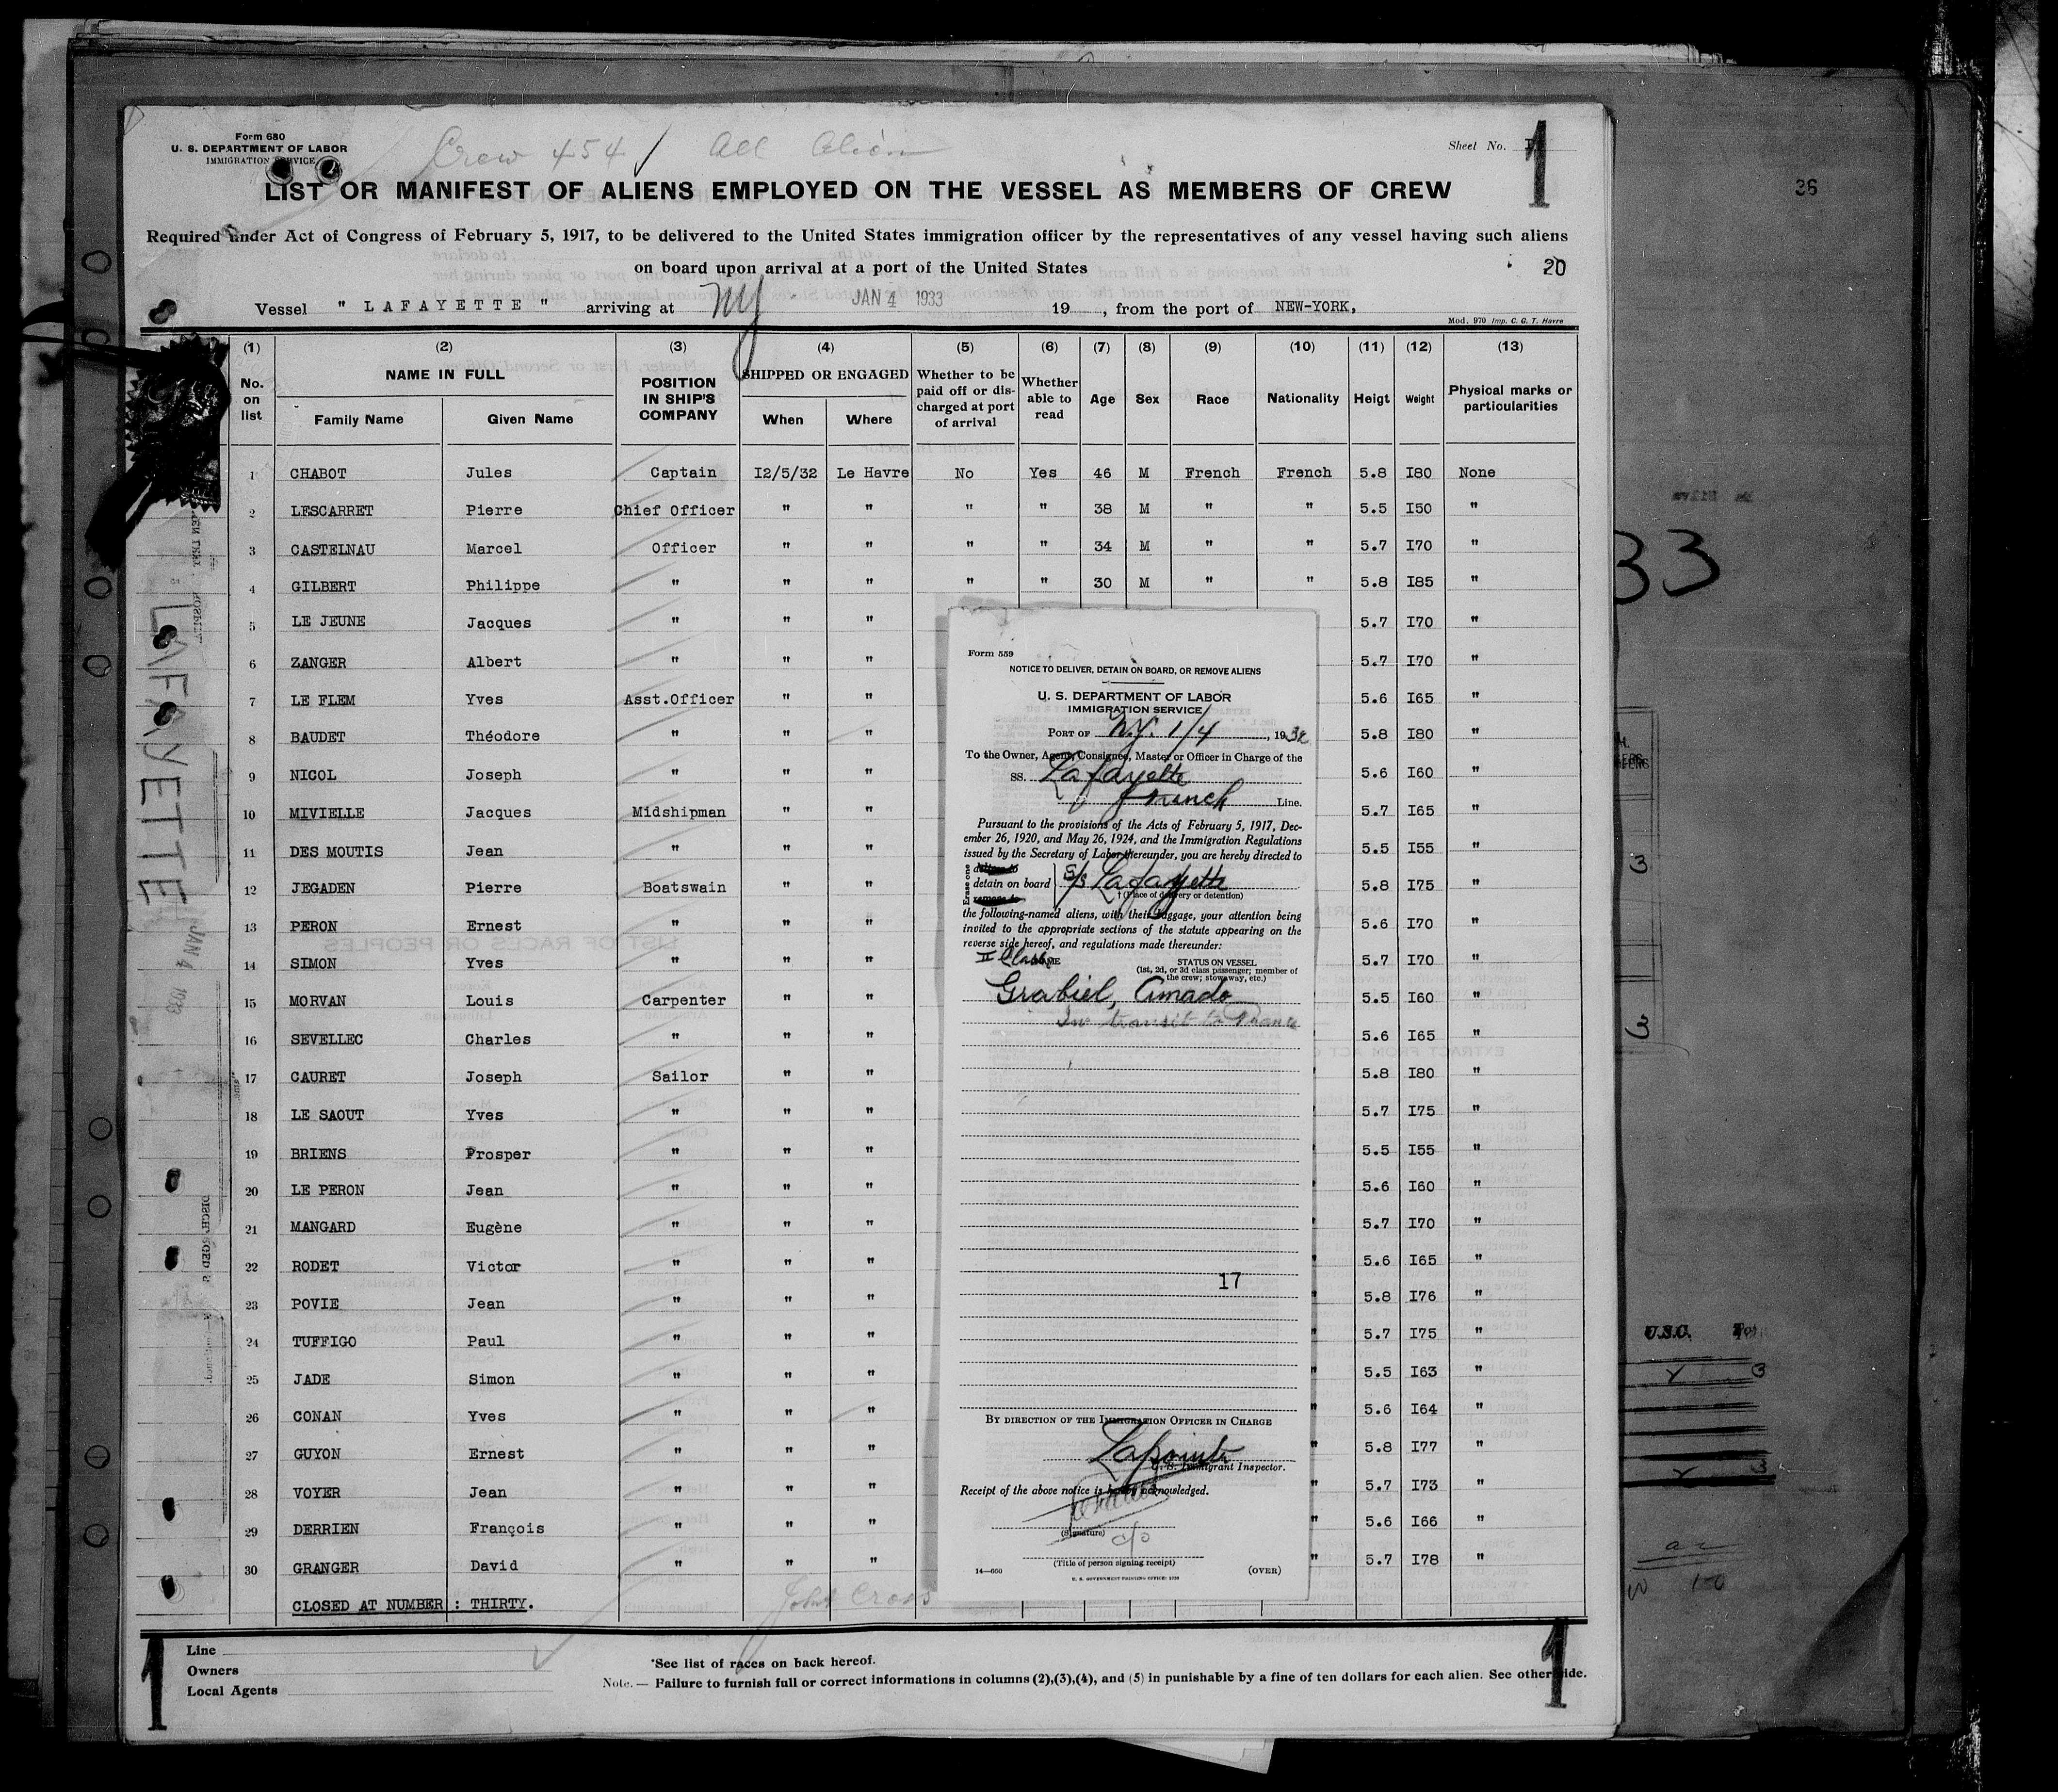 Form 680
U. S. DEPARTMENT OF LABOR
IMMIGRATION SERVICE
Crew 454 ✓ All
Sheet No. 1
LIST OR MANIFEST OF ALIENS EMPLOYED ON THE VESSEL AS MEMBERS OF CREW
Required under Act of Congress of February 5, 1917, to be delivered to the United States immigration officer by the representatives of any vessel having such aliens
on board upon arrival at a port of the United States
20
Vessel " LAFAYETTE " arriving at NY JAN 4 1933 19 , from the port of NEW-YORK,
Mod. 970 Imp. C. G. T. Havre
(1) (2) (3) (4) (5) (6) (7) (8) (9) (10) (11) (12) (13)
No. on list NAME IN FULL Family Name Given Name POSITION IN SHIP'S COMPANY SHIPPED OR ENGAGED When Where Whether to be paid off or discharged at port of arrival Whether able to read Age Sex Race Nationality Heigt Weight Physical marks or particularities
1 CHABOT Jules Captain I2/5/32 Le Havre No Yes 46 M French French 5.8 I80 None
2 LESCARRET Pierre Chief Officer " " " " 38 M " " 5.5 I50 "
3 CASTELNAU Marcel Officer " " " " 34 M " " 5.7 I70 "
4 GILBERT Philippe " " " " " 30 M " " 5.8 I85 "
5 LE JEUNE Jacques " " " 5.7 I70 "
6 ZANGER Albert " " " 5.7 I70 "
7 LE FLEM Yves Asst.Officer " " 5.6 I65 "
8 BAUDET Théodore " " " 5.8 I80 "
9 NICOL Joseph " " " 5.6 I60 "
10 MIVIELLE Jacques Midshipman " " 5.7 I65 "
11 DES MOUTIS Jean " " " 5.5 I55 "
12 JEGADEN Pierre Boatswain " " 5.8 I75 "
13 PERON Ernest " " " 5.6 I70 "
14 SIMON Yves " " " 5.7 I70 "
15 MORVAN Louis Carpenter " " 5.5 I60 "
16 SEVELLEC Charles " " " 5.6 I65 "
17 CAURET Joseph Sailor " " 5.8 I80 "
18 LE SAOUT Yves " " " " 5.7 I75 "
19 BRIENS Prosper " " " " 5.5 I55 "
20 LE PERON Jean " " " " 5.6 I60 "
21 MANGARD Eugène " " " " 5.7 I70 "
22 RODET Victor " " " " 5.6 I65 "
23 POVIE Jean " " " " 5.8 I76 "
24 TUFFIGO Paul " " " " 5.7 I75 "
25 JADE Simon " " " " 5.5 I63 "
26 CONAN Yves " " " " 5.6 I64 "
27 GUYON Ernest " " " " 5.8 I77 "
28 VOYER Jean " " " " 5.7 I73 "
29 DERRIEN François " " " " 5.6 I66 "
30 GRANGER David " " " " 5.7 I78 "
CLOSED AT NUMBER : THIRTY.
John Cross
Form 559
NOTICE TO DELIVER, DETAIN ON BOARD, OR REMOVE ALIENS
U. S. DEPARTMENT OF LABOR
IMMIGRATION SERVICE
PORT OF N.Y. 1/4 , 193
To the Owner, Agent, Consignee, Master or Officer in Charge of the
SS. Lafayette
French Line.
Pursuant to the provisions of the Acts of February 5, 1917, Dec-
ember 26, 1920, and May 26, 1924, and the Immigration Regulations
issued by the Secretary of Labor thereunder, you are hereby directed to
Erase one
deliver to
detain on board S/S Lafayette
remove to
† (Place of delivery or detention)
the following-named aliens, with their luggage, your attention being
invited to the appropriate sections of the statute appearing on the
reverse side hereof, and regulations made thereunder:
II Class NAME STATUS ON VESSEL
(1st, 2d, or 3d class passenger; member of
the crew; stowaway, etc.)
Grabiel, Amado
In transit to France
17
BY DIRECTION OF THE IMMIGRATION OFFICER IN CHARGE
Lapointe
U. S. Immigrant Inspector.
Receipt of the above notice is hereby acknowledged.
(Signature)
(Title of person signing receipt)
14—660 U. S. GOVERNMENT PRINTING OFFICE (OVER)
Line
Owners
Local Agents
*See list of races on back hereof.
Note.— Failure to furnish full or correct informations in columns (2),(3),(4), and (5) in punishable by a fine of ten dollars for each alien. See other side.
1
1
LAFAYETTE JAN 4 1933
36
33
3
3
U.S.C.
3
3